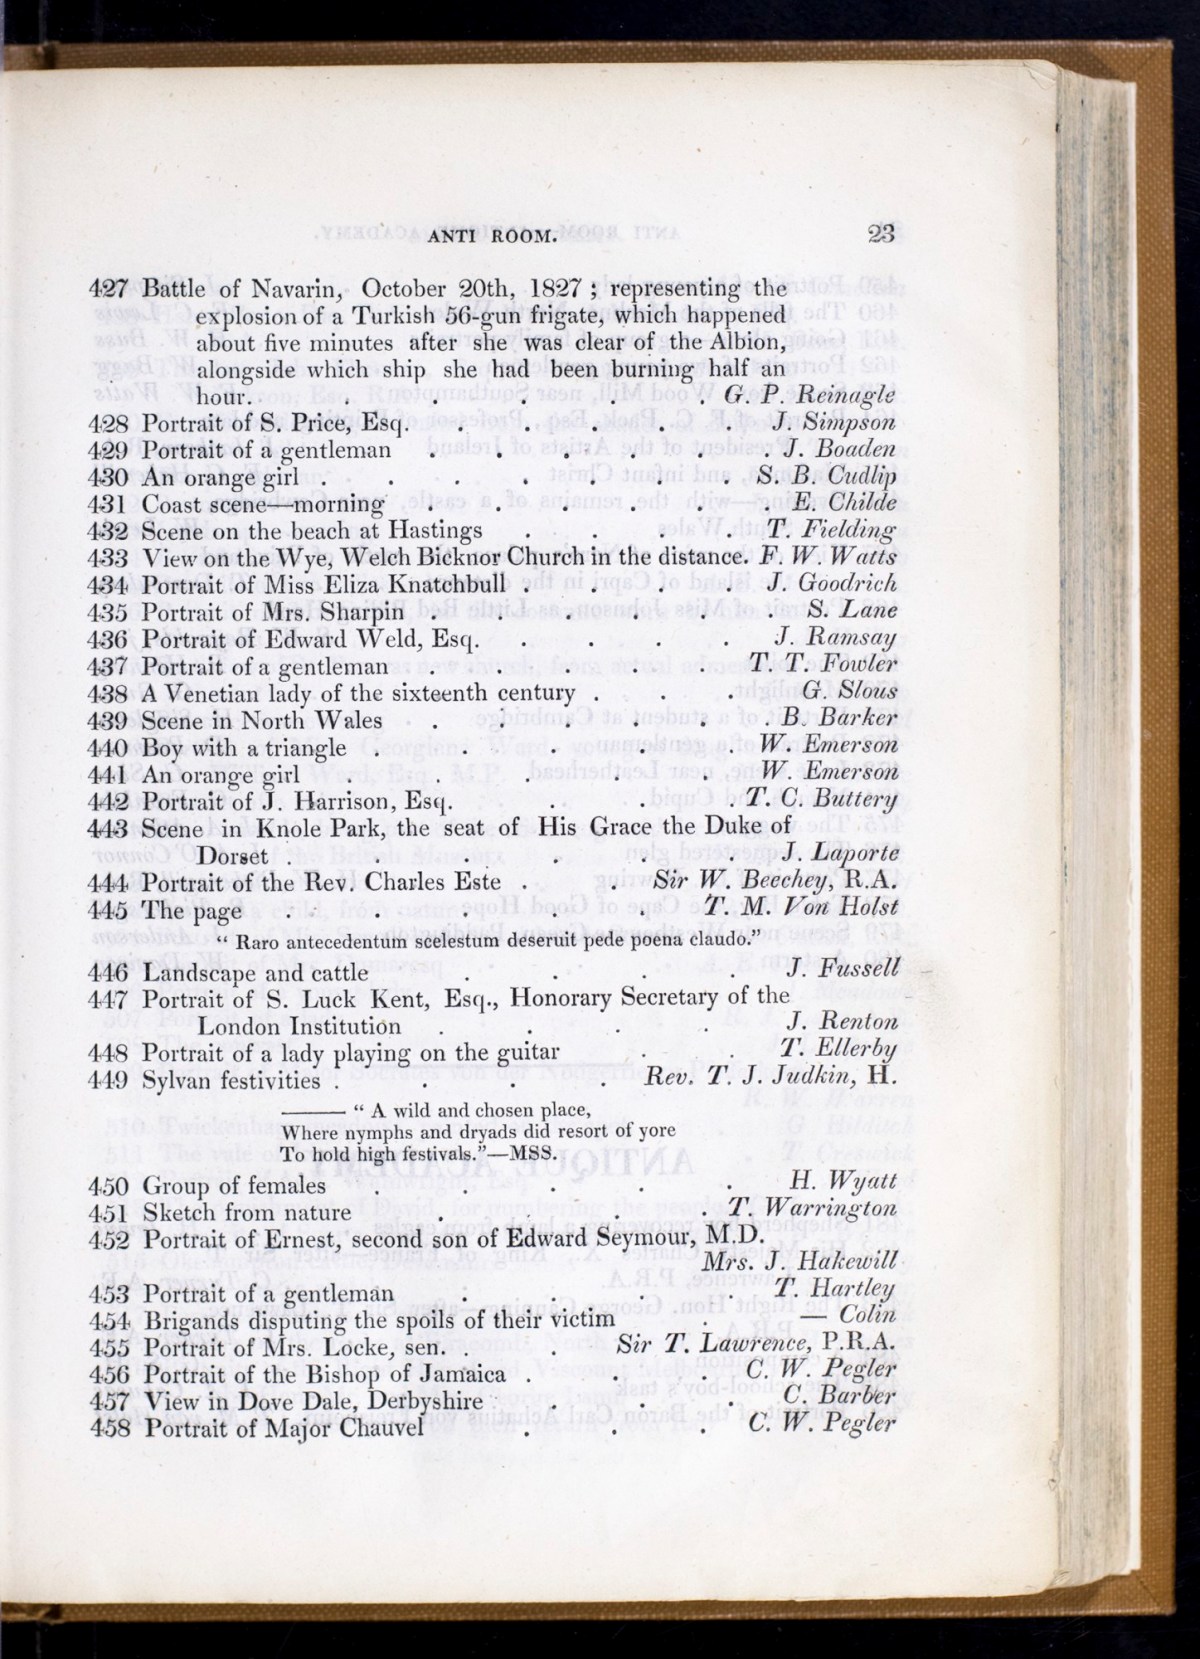 ANTI ROOM. 23
427 Battle of Navarin, October 20th, 1827; representing the
explosion of a Turkish 56-gun frigate, which happened
about five minutes after she was clear of the Albion,
alongside which ship she had been burning half an
hour. . . . . . . G. P. Reinagle
428 Portrait of S. Price, Esq. . . . . . J. Simpson
429 Portrait of a gentleman . . . . . . J. Boaden
430 An orange girl . . . . . . . S. B. Cudlip
431 Coast scene—morning . . . . . . E. Childe
432 Scene on the beach at Hastings . . . . T. Fielding
433 View on the Wye, Welch Bicknor Church in the distance. F. W. Watts
434 Portrait of Miss Eliza Knatchbull . . . . J. Goodrich
435 Portrait of Mrs. Sharpin . . . . . . S. Lane
436 Portrait of Edward Weld, Esq. . . . . J. Ramsay
437 Portrait of a gentleman . . . . . T. T. Fowler
438 A Venetian lady of the sixteenth century . . . G. Slous
439 Scene in North Wales . . . . . . B. Barker
440 Boy with a triangle . . . . . W. Emerson
441 An orange girl . . . . . W. Emerson
442 Portrait of J. Harrison, Esq. . . . T. C. Buttery
443 Scene in Knole Park, the seat of His Grace the Duke of
Dorset . . . . . . J. Laporte
444 Portrait of the Rev. Charles Este . . Sir W. Beechey, R.A.
445 The page . . . . . T. M. Von Holst
“ Raro antecedentum scelestum deseruit pede poena claudo.”
446 Landscape and cattle . . . . J. Fussell
447 Portrait of S. Luck Kent, Esq., Honorary Secretary of the
London Institution . . . . J. Renton
448 Portrait of a lady playing on the guitar . . T. Ellerby
449 Sylvan festivities . . . . Rev. T. J. Judkin, H.
——— “ A wild and chosen place,
Where nymphs and dryads did resort of yore
To hold high festivals.”—MSS.
450 Group of females . . . . . H. Wyatt
451 Sketch from nature . . . . T. Warrington
452 Portrait of Ernest, second son of Edward Seymour, M.D.
Mrs. J. Hakewill
453 Portrait of a gentleman . . . . T. Hartley
454 Brigands disputing the spoils of their victim . — Colin
455 Portrait of Mrs. Locke, sen. . . Sir T. Lawrence, P.R.A.
456 Portrait of the Bishop of Jamaica . . . C. W. Pegler
457 View in Dove Dale, Derbyshire . . . C. Barber
458 Portrait of Major Chauvel . . . C. W. Pegler